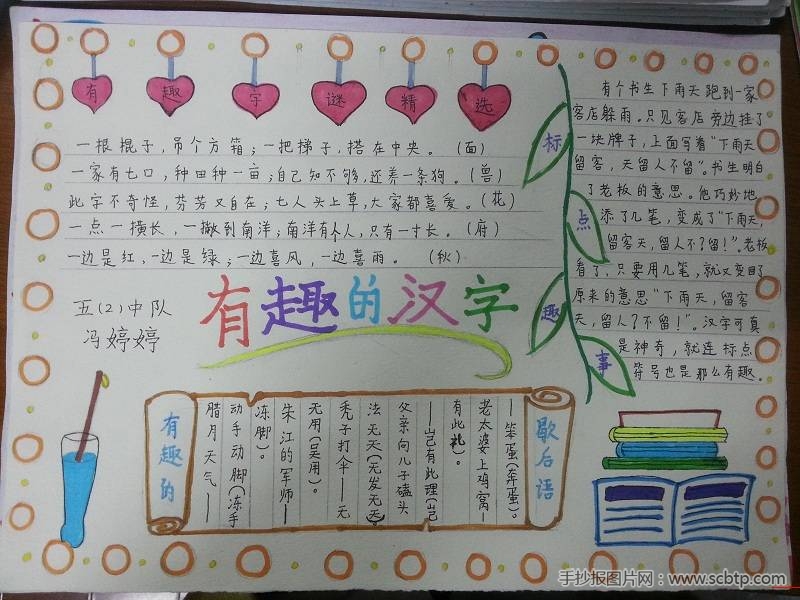 有趣字谜精选
一根棍子，吊个方箱；一把梯子，搭在中央。（面）
一家有七口，种田种一亩；自己知不够，还养一条狗。（兽）
此字不奇怪，芬芳又自在；七人头上草，大家都喜爱。（花）
一点一横长，一撇到南洋；南洋有个人，只有一寸长。（府）
一边是红，一边是绿；一边喜风，一边喜雨。（秋）
五（2）中队
冯婷婷
有趣的汉字
标点趣事
有个书生下雨天跑到一家
客店躲雨。只见客店旁边挂了
一块牌子，上面写着“下雨天
留客，天留人不留”。书生明白
了老板的意思。他巧妙地
添了几笔，变成了“下雨天，
留客天，留人不？留！”。老板
看了，只要用几笔，就又变回了
原来的意思“下雨天，留客
天，留人？不留！”。汉字可真
是神奇，就连标点
符号也是那么有趣。
歇后语
—笨蛋（奔蛋）。
老太婆上鸡窝—
有此礼）。
—岂有此理（岂
父亲向儿子磕头
法无天（无发无天）
秃子打伞——无
无用（吴用）。
朱江的军师—
冻脚）。
动手动脚（冻手
腊月天气——
有趣的
手抄报图片网：www.scbtp.com